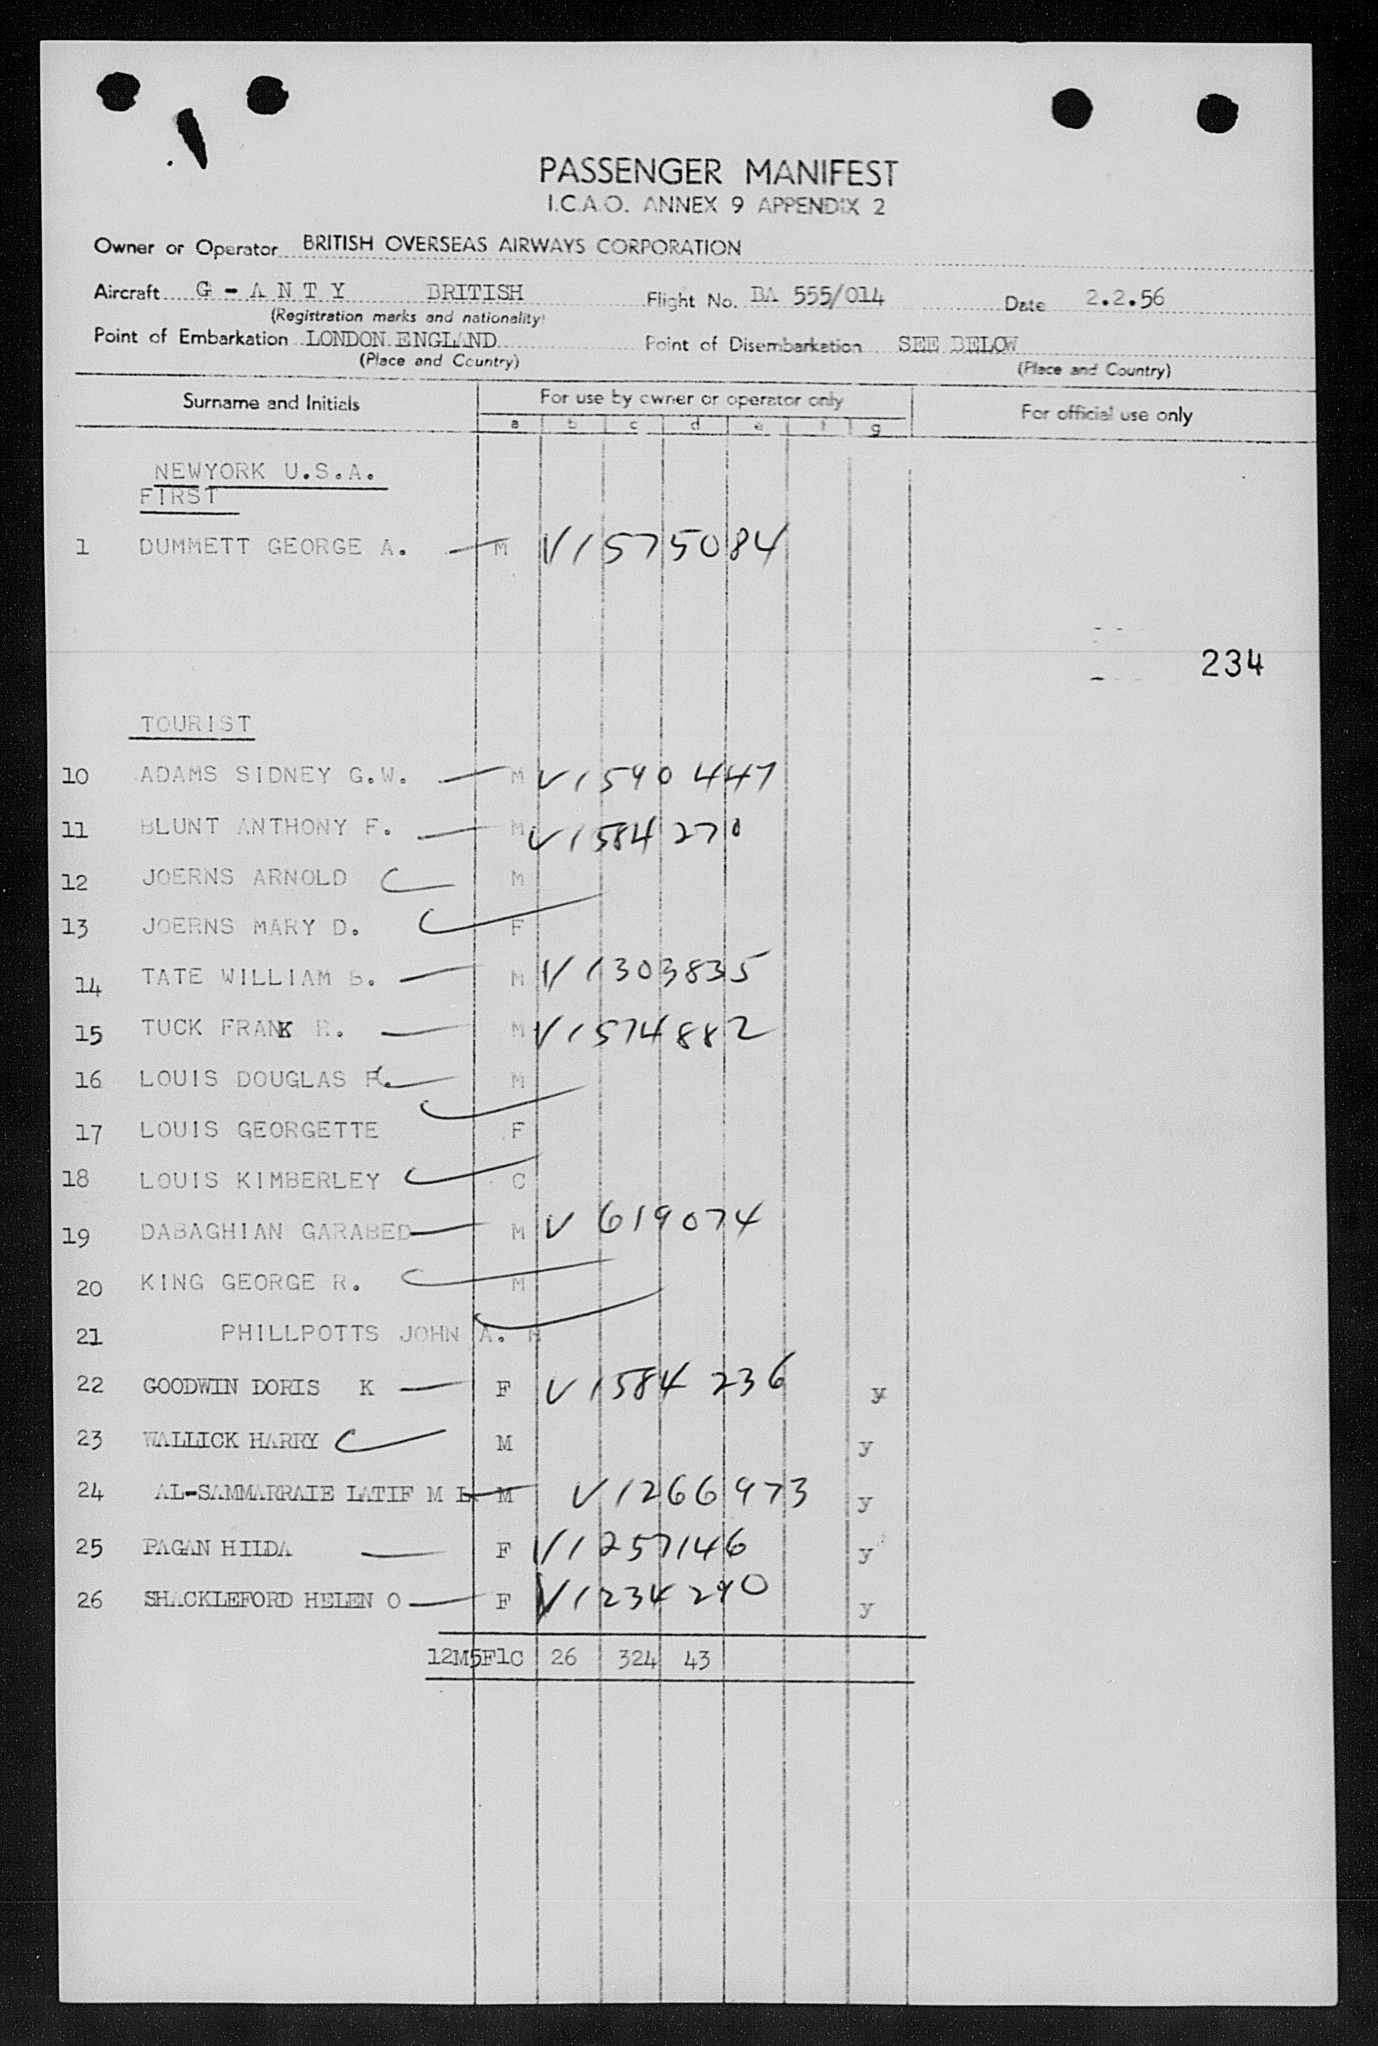 PASSENGER MANIFEST
I.C.A.O. ANNEX 9 APPENDIX 2
Owner or Operator BRITISH OVERSEAS AIRWAYS CORPORATION
Aircraft G - A N T Y BRITISH Flight No. BA 555/014 Date 2.2.56
(Registration marks and nationality)
Point of Embarkation LONDON ENGLAND Point of Disembarkation SEE BELOW
(Place and Country) (Place and Country)
Surname and Initials For use by owner or operator only For official use only
a b c d e f g
NEWYORK U.S.A.
FIRST
1 DUMMETT GEORGE A. M V1575084
234
TOURIST
10 ADAMS SIDNEY G.W. M V1590447
11 BLUNT ANTHONY F. M V1584270
12 JOERNS ARNOLD M
13 JOERNS MARY D. F
14 TATE WILLIAM S. M V1303835
15 TUCK FRANK R. M V1574882
16 LOUIS DOUGLAS F. M
17 LOUIS GEORGETTE F
18 LOUIS KIMBERLEY C
19 DABAGHIAN GARABED M V 619074
20 KING GEORGE R. M
21 PHILLPOTTS JOHN A. M
22 GOODWIN DORIS K F V1584236 y
23 WALLICK HARRY M y
24 AL-SAMMARRAIE LATIF M L M V1266973 y
25 PAGAN HILDA F V1257146 y
26 SHACKLEFORD HELEN O F V1234290 y
12M5F1C 26 324 43